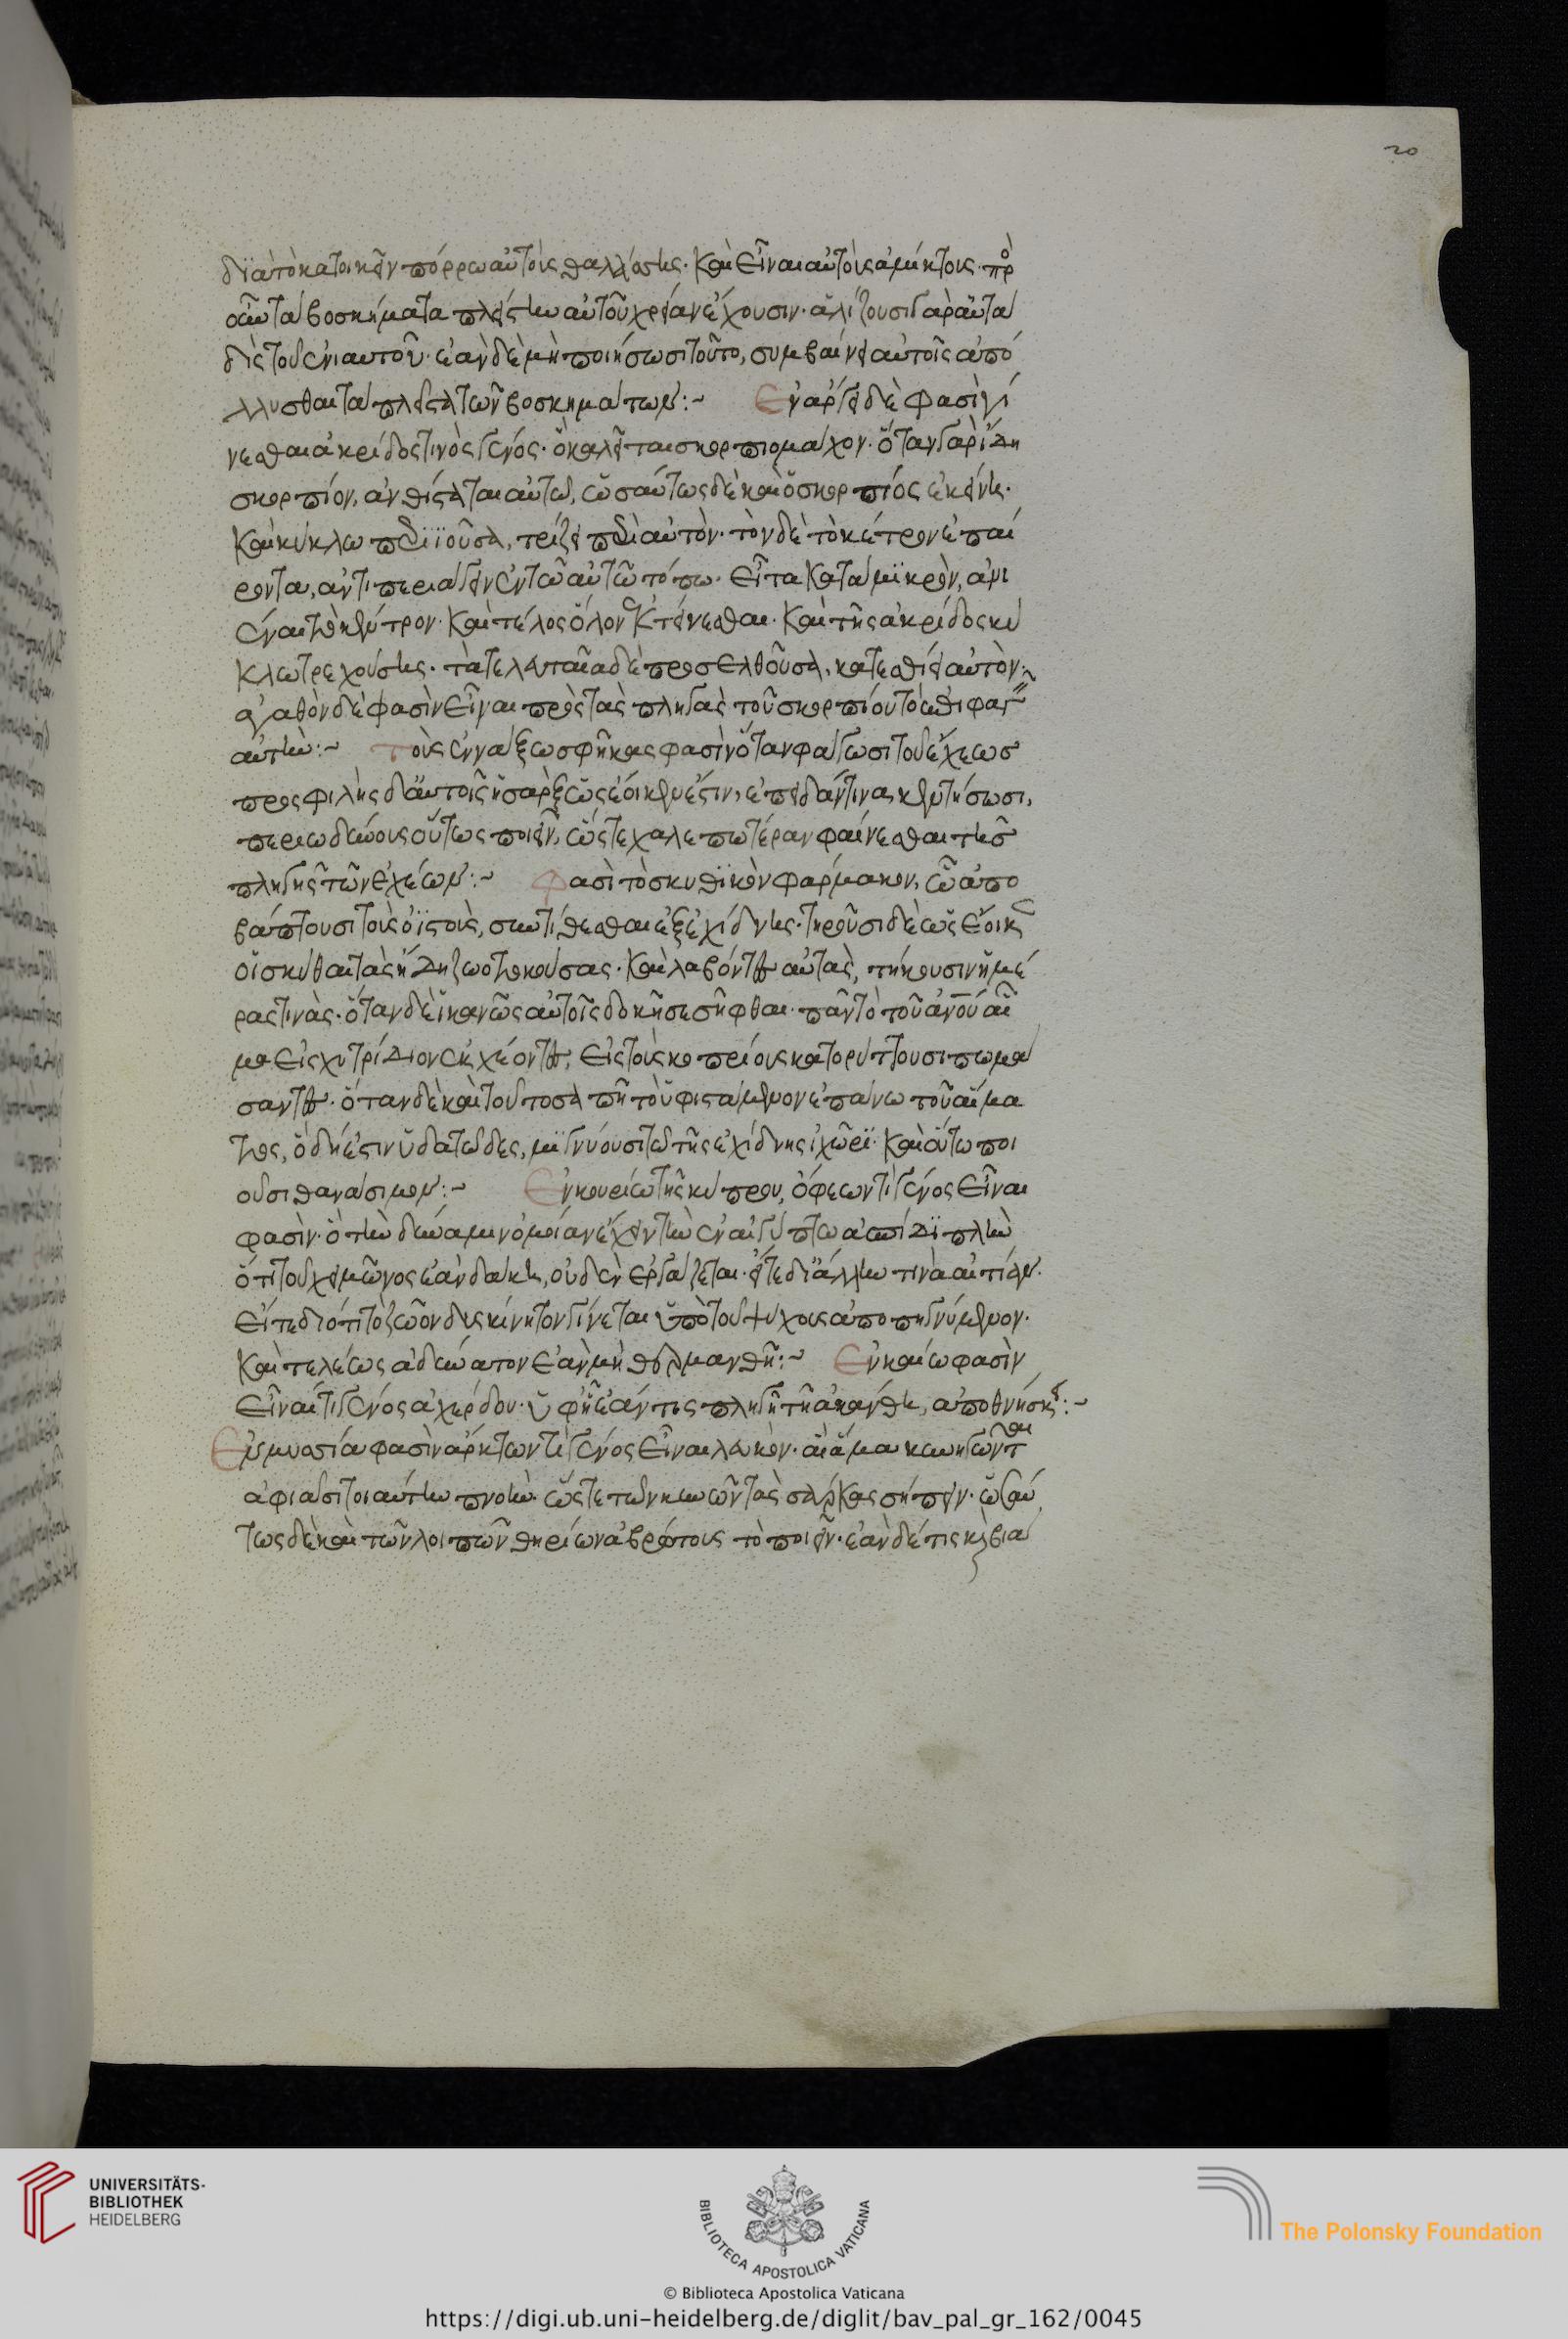 20
διὰ τὸ κατοικεῖν πόρρω αὐτοῖς θαλάσσης. Καὶ εἶναι αὐτοῖς ἀμίκτοις. πρὸ
τὰ βοσκήματα πλείστην αὐτοῦ χρείαν ἔχουσιν. ἁλίζουσι γὰρ αὐτὰ
δὶς τοῦ ἐνιαυτοῦ. ἐὰν δὲ μὴ ποιήσωσι τοῦτο, συμβαίνει αὐτοῖς ἀπό
λλυσθαι τὰ πλεῖστα τῶν βοσκημάτων:~ Ἐν ἄργει δὲ φασὶ γί
νεσθαι ἀκρίδος τινὸς γένος. ὃ καλεῖται σκορπιομάχον. ὅταν γὰρ ἴδη
σκορπίον, ἀνθίσταται αὐτῶ, ὡσαύτως δὲ καὶ ὁ σκορπίος ἐκείνη.
Καὶ κύκλω περιϊοῦσα, τρίζει περὶ αὐτὸν. τὸν δὲ τὸ κέντρον ἐπαί
ροντα, ἀντιπεριάγειν ἐν τῶ αὐτῶ τόπω. εἶτα κατὰ μϊκρὸν, ἀνι
έναι τὸ κέντρον. Καὶ τέλος ὅλον ἐκτείνεσθαι. Καὶ τῆς ἀκρίδος κύ
κλω τρεχούσης. τὰ τελευταῖα δὲ προσελθοῦσα, κατεσθίει αὐτὸν.
ἀγαθὸν δὲ φασὶν εἶναι πρὸς τὰς πληγὰς τοῦ σκορπίου τὸ ἐπιφαγεῖν
αὐτὴν:~ Τοὺς ἐν νάξω σφῆκας φασὶν ὅταν φάγωσι τοῦ ἔχεως
προσφιλὴς δ' αὐτοῖς ἡ σὰρξ ὡς ἔοικεν ἐστὶν, ἐπειδάν τινα κεντήσωσι,
περιωδύνους οὕτως ποιεῖν, ὥστε χαλεπωτέραν φαίνεσθαι τῆς
πληγῆς τῶν ἐχέων:~ Φασὶ τὸ σκυθϊκὸν φάρμακον, ὧ ἀπο
βάπτουσι τοὺς ὀϊστοὺς, συντίθεσθαι ἐξ ἐχίδνης. τηροῦσι δὲ ὡς ἔοικεν
οἱ σκύθαι τὰς ἤδη ζωοτοκούσας. Καὶ λαβόντες αὐτὰς, τήκουσιν ἡμέ
ρας τινὰς. ὅταν δὲ ἱκανῶς αὐτοῖς δοκῆ σεσῆφθαι πᾶν τὸ τοῦ ἀνου αἷ
μα εἰς χυτρίδιον ἐκχέοντες, εἰς τοὺς κοπρίους κατορύττουσι πωμά
σαντες. ὅταν δὲ καὶ τοῦτο σαπῆ τὸ ὑφιστάμενον ἐπάνω τοῦ αἵμα
τος, ὃ δή ἐστιν ὑδατῶδες, μϊγνύουσι τῶ τῆς ἐχίδνης ἰχῶρϊ. Καὶ οὕτω ποι
οῦσι θανάσιμον:~ Ἐν κουρίω τῆς κύπρου, ὄφεων τὶ γένος εἶναι
φασὶν. ὃ τὴν δύναμιν ὁμοίαν ἔχειν τῆ ἐν αἰγύπτω ἀσπίδϊ πλὴν
ὅτι τοῦ χειμῶνος ἐὰν δάκη, οὐδὲν ἐργάζεται. εἴτε δι' ἄλλην τινὰ αἰτίαν.
εἴτε διότι τὸ ζῶον δυσκίνητον γίνεται ὑπὸ τοῦ ψύχους ἀποπηγνύμενον.
Καὶ τελέως ἀδύνατον ἐὰν μὴ θερμανθῆ:~ Ἐν κείω φασὶν
εἶναί τι γένος ἀχέρδου. ὑφ' ἧς ἐάν τις πληγῆ τῆ ἀκάνθη, ἀποθνήσκει:~
Ἐν μυσία φασὶν ἄρκτων τὶ γένος εἶναι λευκὸν. αἳ ἅμα κυνηγῶνται
ἀφιᾶσι τοιαύτην πνοὴν. ὥστε τῶν κυνῶν τὰς σάρκας σήπειν. ὡσαύ
τως δὲ καὶ τῶν λοιπῶν θηρίων ἀβρώτους τὸ ποιεῖν. ἐὰν δέ τις καὶ βιά
UNIVERSITÄTS-
BIBLIOTHEK
HEIDELBERG
BIBLIOTECA APOSTOLICA VATICANA
The Polonsky Foundation
© Biblioteca Apostolica Vaticana
https://digi.ub.uni-heidelberg.de/diglit/bav_pal_gr_162/0045